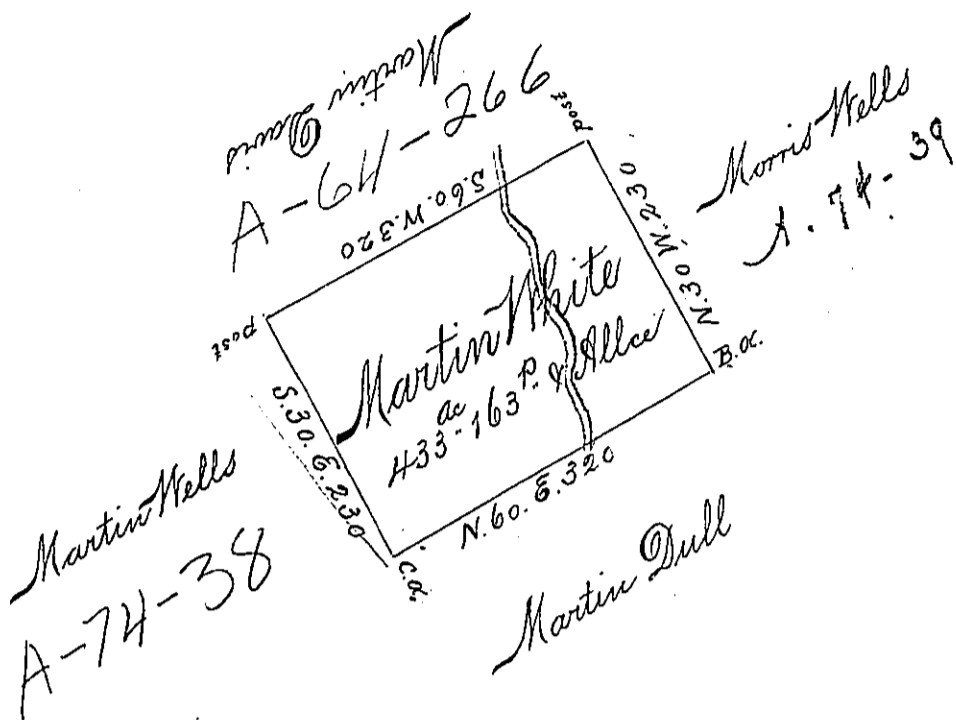 Martin Davis
A-64-266
post
Morris Wells
A. 74-39
S. 60. W. 320
N. 30 W. 230
post
Martin White
433 ac " 163 p. & Allce
B. O.
S. 30. E. 230
N. 60. E. 320
C. O.
Martin Wells
A-74-38
Martin Dull